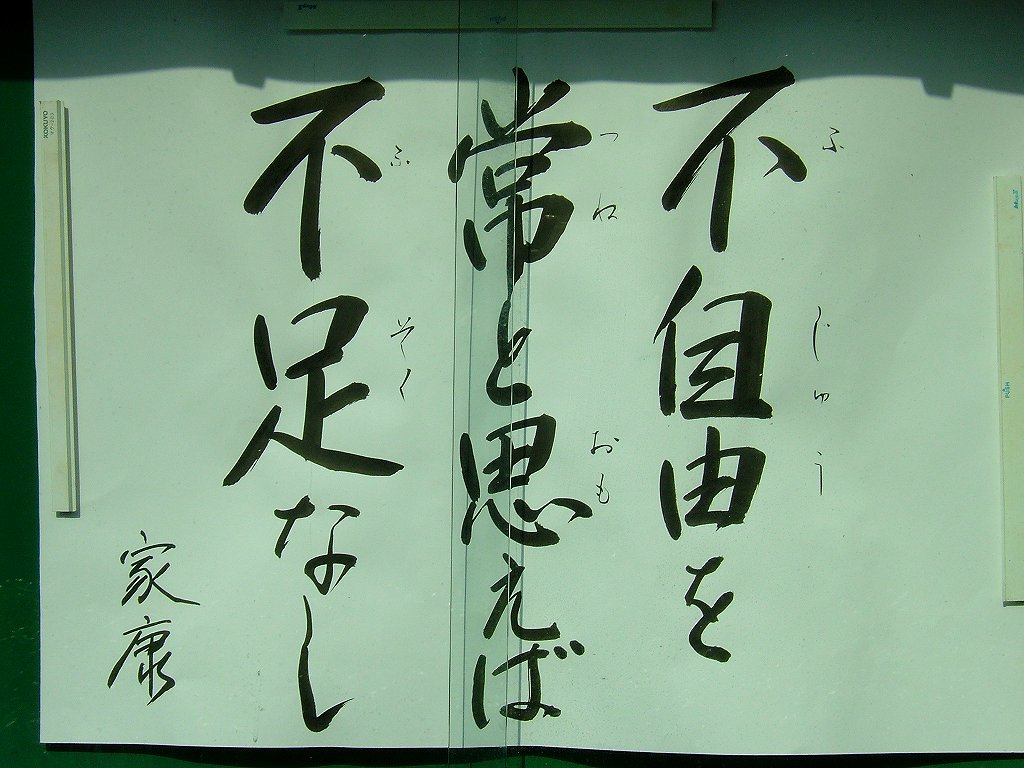 不自由を
ふじゆう
常と思えば
つねおも
不足なし
ふそく
家康